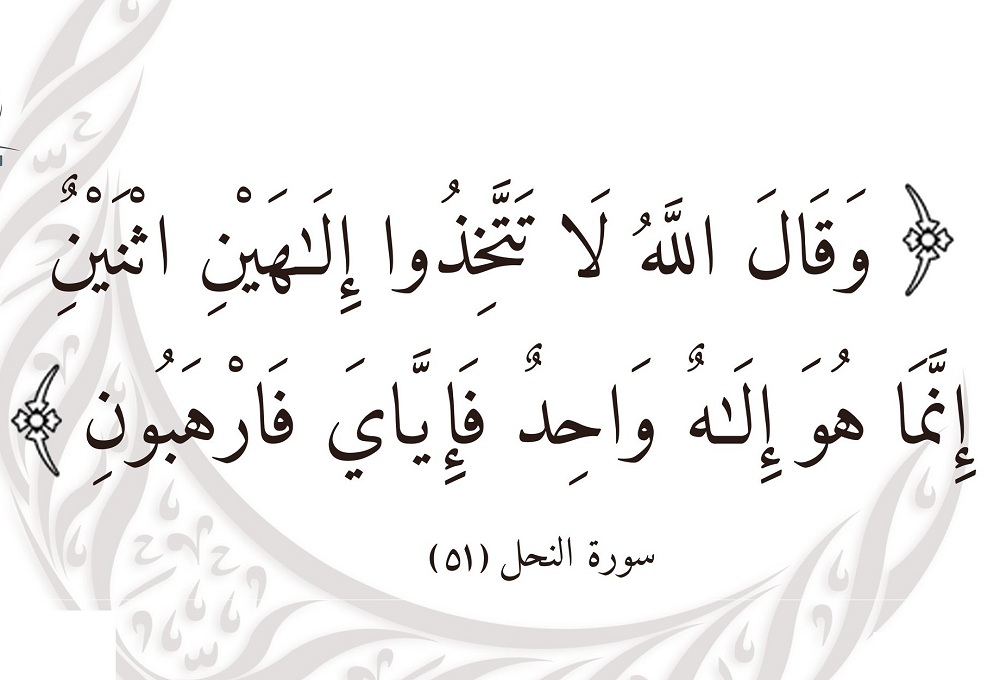 ﴿ وَقَالَ اللَّهُ لَا تَتَّخِذُوا إِلَـٰهَيْنِ اثْنَيْنِۖ
إِنَّمَا هُوَ إِلَـٰهٌ وَاحِدٌ فَإِيَّايَ فَارْهَبُونِ ﴾
سورة النحل (٥١)